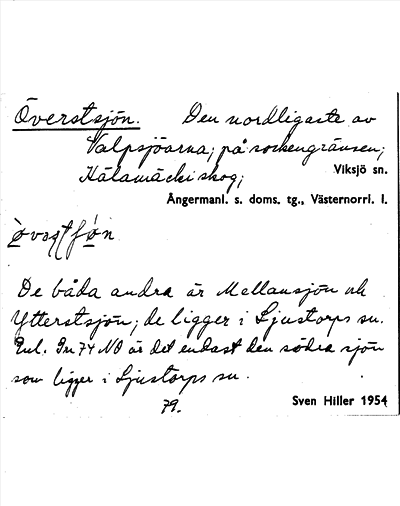 Överstsjön. Den nordligaste av
Valpsjöarna; på sockengränsen;
Kälamäcki skog; Viksjö sn.
Ångermanl. s. doms. tg., Västernorrl. l.
De båda andra är Mellansjön och
Ytterstsjön; de ligger i Ljustorps sn.
Enl. Gn 74 NO är det endast den södra sjön
som ligger i Ljustorps sn.
79. Sven Hiller 1954